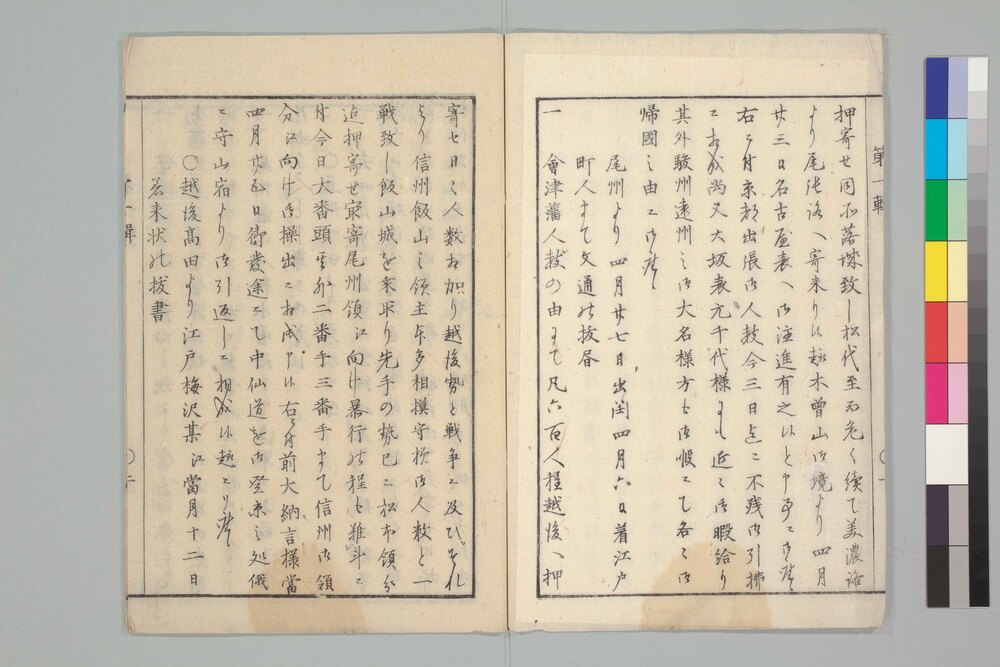 第一輯
押寄せ同所落城致し松代至而危く續て美濃路
より尾張路へ寄来り候趣木曽山御境より四月
廿三日名古屋表へ御注進有之候と申事ニ御座候
右ニ付京都出張御人数今三日迄ニ不残御引拂
ニ相成尚又大坂表元千代様ニも近々御暇給り
其外駿州遠州之御大名様方も御暇ニて各々御
帰國之由ニ御座候
尾州より四月廿七日出閏四月六日着江戸
町人まて文通之抜書
一會津藩人数の由ニて凡六百人程越後へ押
寄せ日々人数相加り越後勢と戦争ニ及びそれ
より信州飯山之領主本多相摸守様御人数と一
戦致し飯山城を乗取り先手の勢已ニ松本領分
迠押寄せ最寄尾州領江向け暴行之程も難斗ニ
付今日大番頭始二番手三番手まて信州御領
分江向け御操出ニ相成申候右ニ付前大納言様當
四月廿五日御發途ニて中仙道を御登京之処俄
ニ守山宿より御引返しニ相成候趣ニ御座候
〇越後髙田より江戸梅沢某江當月十二日
着来状之抜書